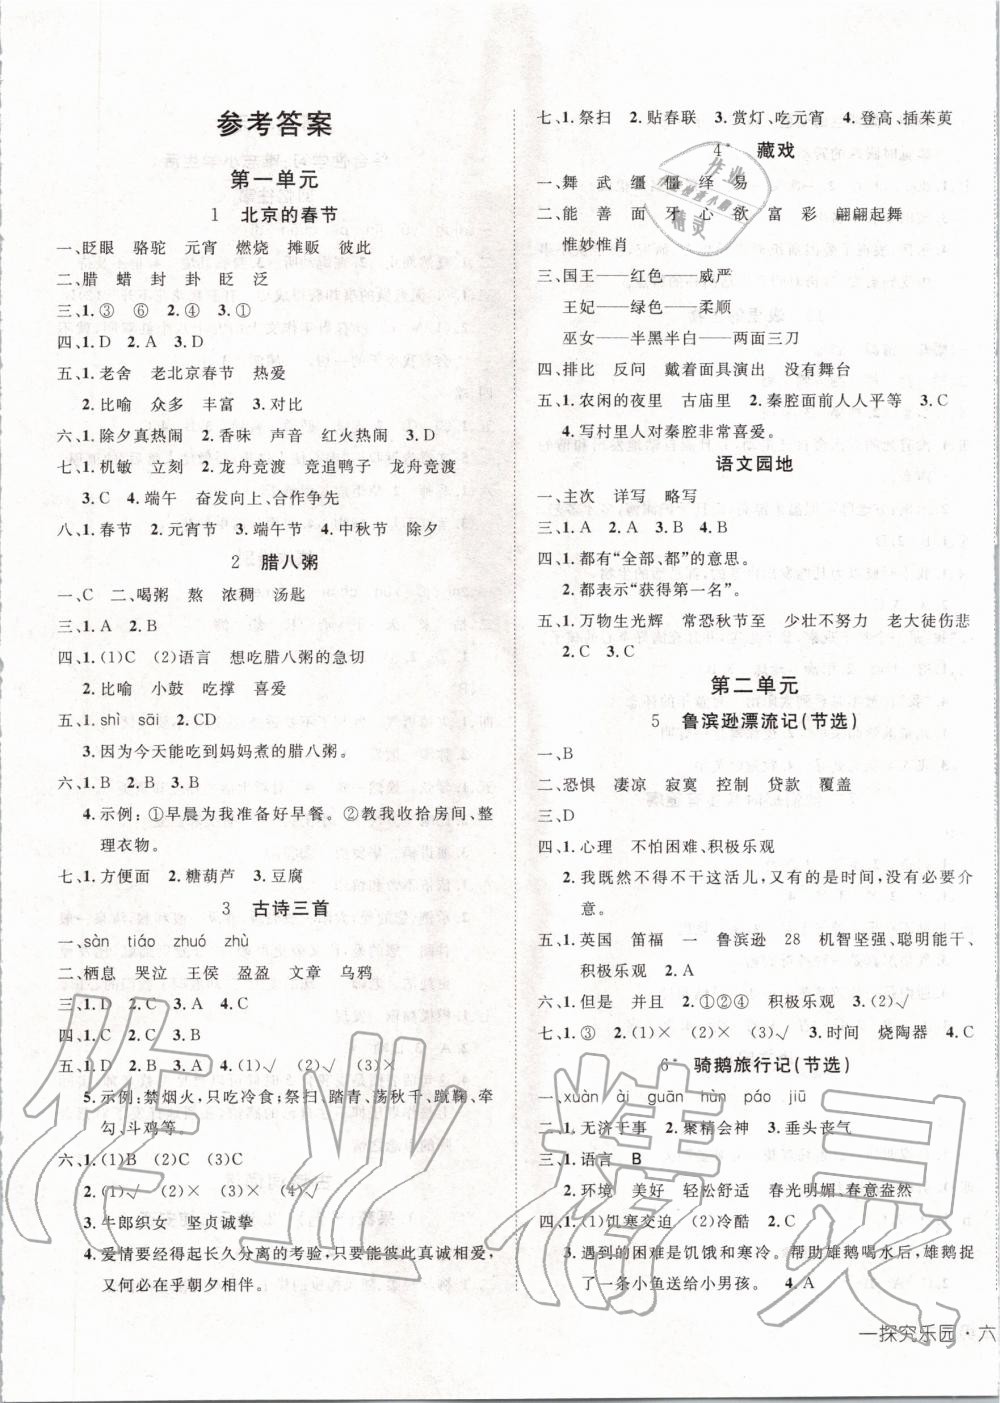 参考答案
第一单元
1 北京的春节
一、眨眼 骆驼 元宵 燃烧 摊贩 彼此
二、腊 蜡 封 卦 眨 泛
三、1.③ ⑥ 2.④ 3.①
四、1.D 2.A 3.D
五、1.老舍 老北京春节 热爱
2.比喻 众多 丰富 3.对比
六、1.除夕真热闹 2.香味 声音 红火热闹 3.D
七、1.机敏 立刻 2.龙舟竞渡 竞追鸭子 龙舟竞渡
3.C 4.端午 奋发向上、合作争先
八、1.春节 2.元宵节 3.端午节 4.中秋节 除夕
2 腊八粥
一、C 二、喝粥 熬 浓稠 汤匙
三、1.A 2.B
四、1.(1)C (2)语言 想吃腊八粥的急切
2.比喻 小鼓 吃撑 喜爱
五、1.shì sāi 2.CD
3.因为今天能吃到妈妈煮的腊八粥。
六、1.B 2.B 3.B
4.示例:①早晨为我准备好早餐。②教我收拾房间、整
理衣物。
七、1.方便面 2.糖葫芦 3.豆腐
3 古诗三首
一、sàn tiáo zhuó zhù
二、栖息 哭泣 王侯 盈盈 文章 乌鸦
三、1.D 2.A 3.A 4.C
四、1.C 2.C 3.B
五、1.D 2.B 3.A 4.(1)√ (2)√ (3)×
5.示例:禁烟火,只吃冷食;祭扫、踏青、荡秋千、蹴鞠、牵
勾、斗鸡等。
六、1.(1)B (2)A (3)C
2.(1)√ (2)× (3)× (4)√
3.牛郎织女 坚贞诚挚
4.爱情要经得起长久分离的考验,只要彼此真诚相爱,
又何必在乎朝夕相伴。
七、1.祭扫 2.贴春联 3.赏灯、吃元宵 4.登高、插茱萸
4* 藏戏
一、舞 武 缰 僵 绎 易
二、能 善 面 牙 心 欲 富 彩 翩翩起舞
惟妙惟肖
三、国王——红色——威严
王妃——绿色——柔顺
巫女——半黑半白——两面三刀
四、排比 反问 戴着面具演出 没有舞台
五、1.农闲的夜里 古庙里 2.秦腔面前人人平等 3.C
4.写村里人对秦腔非常喜爱。
语文园地
一、主次 详写 略写
三、1.A 2.A 3.B 4.B
四、1.都有“全部、都”的意思。
2.都表示“获得第一名”。
五、1.万物生光辉 常恐秋节至 少壮不努力 老大徒伤悲
2.C 3.C
第二单元
5 鲁滨逊漂流记(节选)
一、B
二、恐惧 凄凉 寂寞 控制 贷款 覆盖
三、D
四、1.心理 不怕困难、积极乐观
2.我既然不得不干这活儿,有的是时间,没有必要介
意。
五、1.英国 笛福 一 鲁滨逊 28 机智坚强、聪明能干、
积极乐观 2.A
六、1.但是 并且 2.①②④ 积极乐观 3.(2)√
七、1.③ 2.(1)× (2)× (3)√ 3.时间 烧陶器 4.C
6* 骑鹅旅行记(节选)
一、xuàn ài guān hùn páo jiū
二、1.无济于事 2.聚精会神 3.垂头丧气
三、1.语言 B
2.环境 美好 轻松舒适 春光明媚、春意盎然
四、1.(1)饥寒交迫 (2)冷酷 2.(1)√
3.遇到的困难是饥饿和寒冷。帮助雄鹅喝水后,雄鹅捉
了一条小鱼送给小男孩。 4.A
一探究乐园·六
作业
精灵
作业精灵